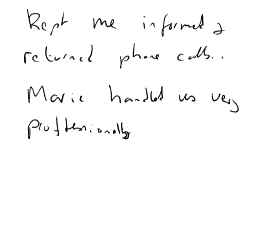 Kept me informed &
returned phone calls..
Marie handled us very
professionally